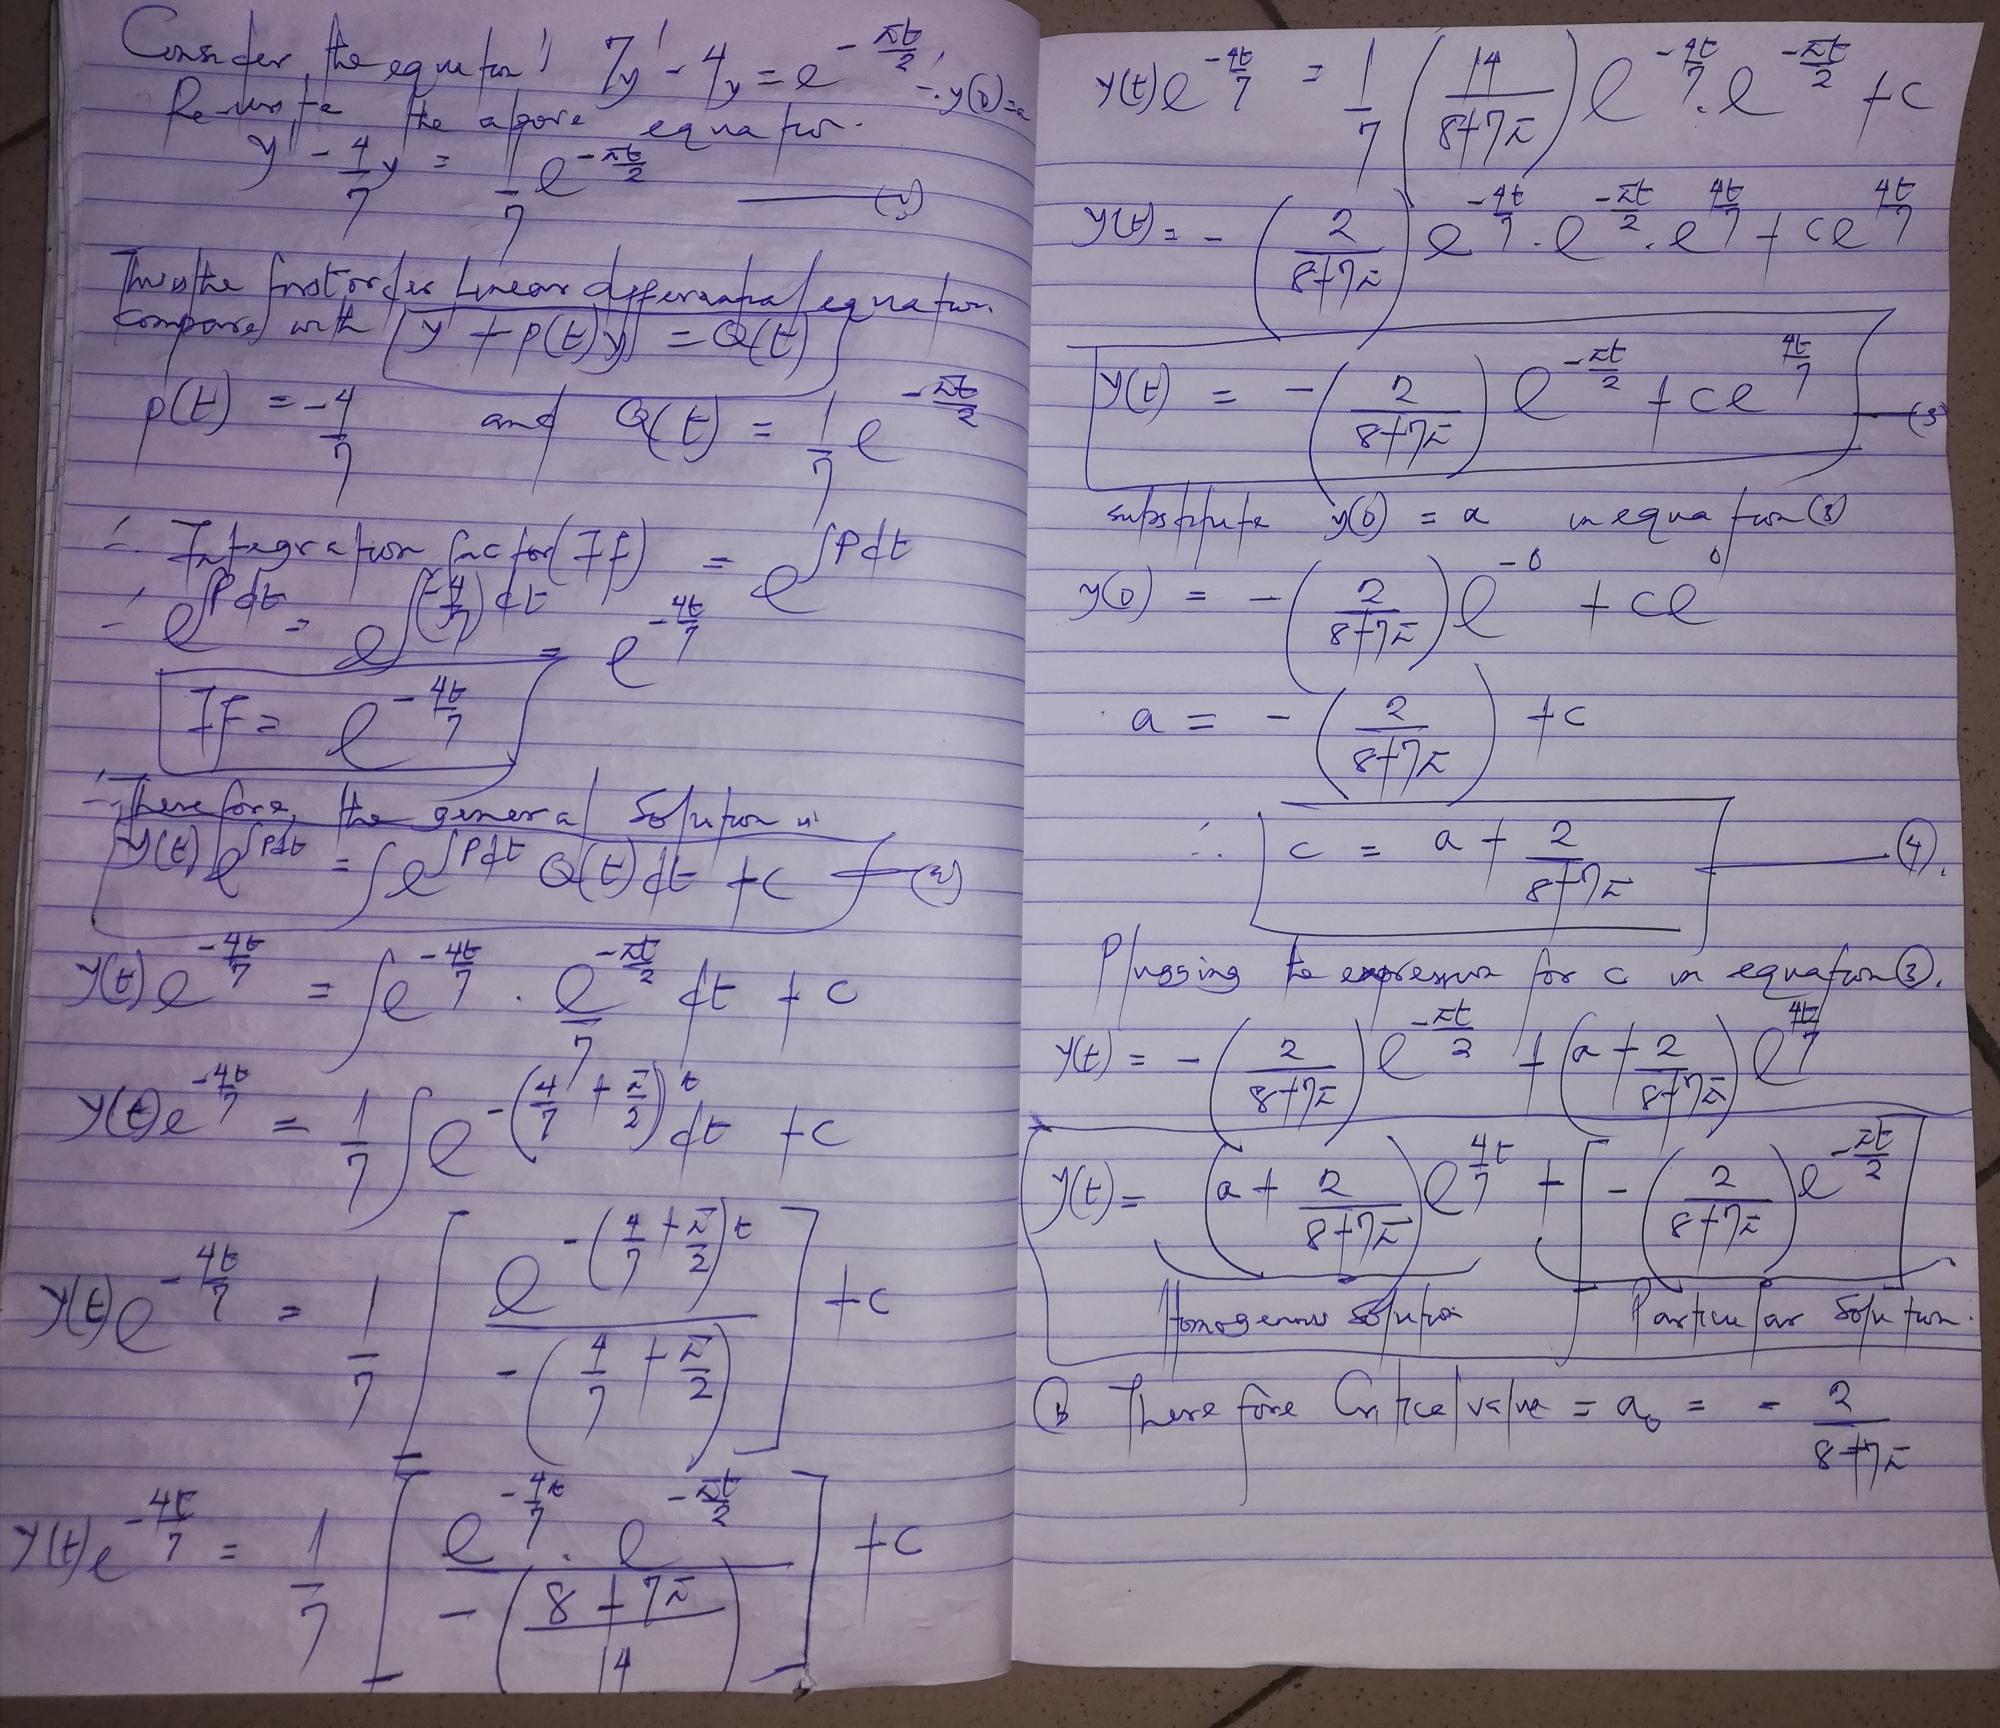 Consider the equation 7y' - 4y = e^{-πt/2} ∴ y(0)=a
Re-write the above equation.
y' - 4/7 y = 1/7 e^{-πt/2} —(1)
This is the first order linear differential equation
compare with y' + p(t)y = Q(t)
p(t) = -4/7 and Q(t) = 1/7 e^{-πt/2}
∴ Integration factor (If) = e^{∫Pdt}
∴ e^{∫Pdt} = e^{∫(-4/7)dt} = e^{-4t/7}
IF = e^{-4t/7}
∴ Therefore, the general solution is
y(t) e^{∫Pdt} = ∫e^{∫Pdt} Q(t) dt + c —(2)
y(t) e^{-4t/7} = ∫e^{-4t/7} · e^{-πt/2}/7 dt + c
y(t) e^{-4t/7} = 1/7 ∫e^{-(4/7 + π/2)t} dt + c
y(t) e^{-4t/7} = 1/7 [e^{-(4/7 + π/2)t} / -(4/7 + π/2)] + c
y(t) e^{-4t/7} = 1/7 [e^{-4t/7} · e^{-πt/2} / -((8+7π)/14)] + c
y(t) e^{-4t/7} = 1/7 (14/(8+7π)) e^{-4t/7} · e^{-πt/2} + c
y(t) = -(2/(8+7π)) e^{-4t/7} · e^{-πt/2} · e^{4t/7} + ce^{4t/7}
y(t) = -(2/(8+7π)) e^{-πt/2} + ce^{4t/7} —(3)
substitute y(0) = a in equation (3)
y(0) = -(2/(8+7π)) e^{-0} + ce^{0}
a = -(2/(8+7π)) + c
∴ c = a + 2/(8+7π) —(4).
Plugging the expression for c in equation (3).
y(t) = -(2/(8+7π)) e^{-πt/2} + (a + 2/(8+7π)) e^{4t/7}
y(t) = (a + 2/(8+7π)) e^{4/7 t} + [-(2/(8+7π)) e^{-πt/2}]
Homogenous solution Particular solution.
(b) Therefore Critical value = a₀ = -2/(8+7π)